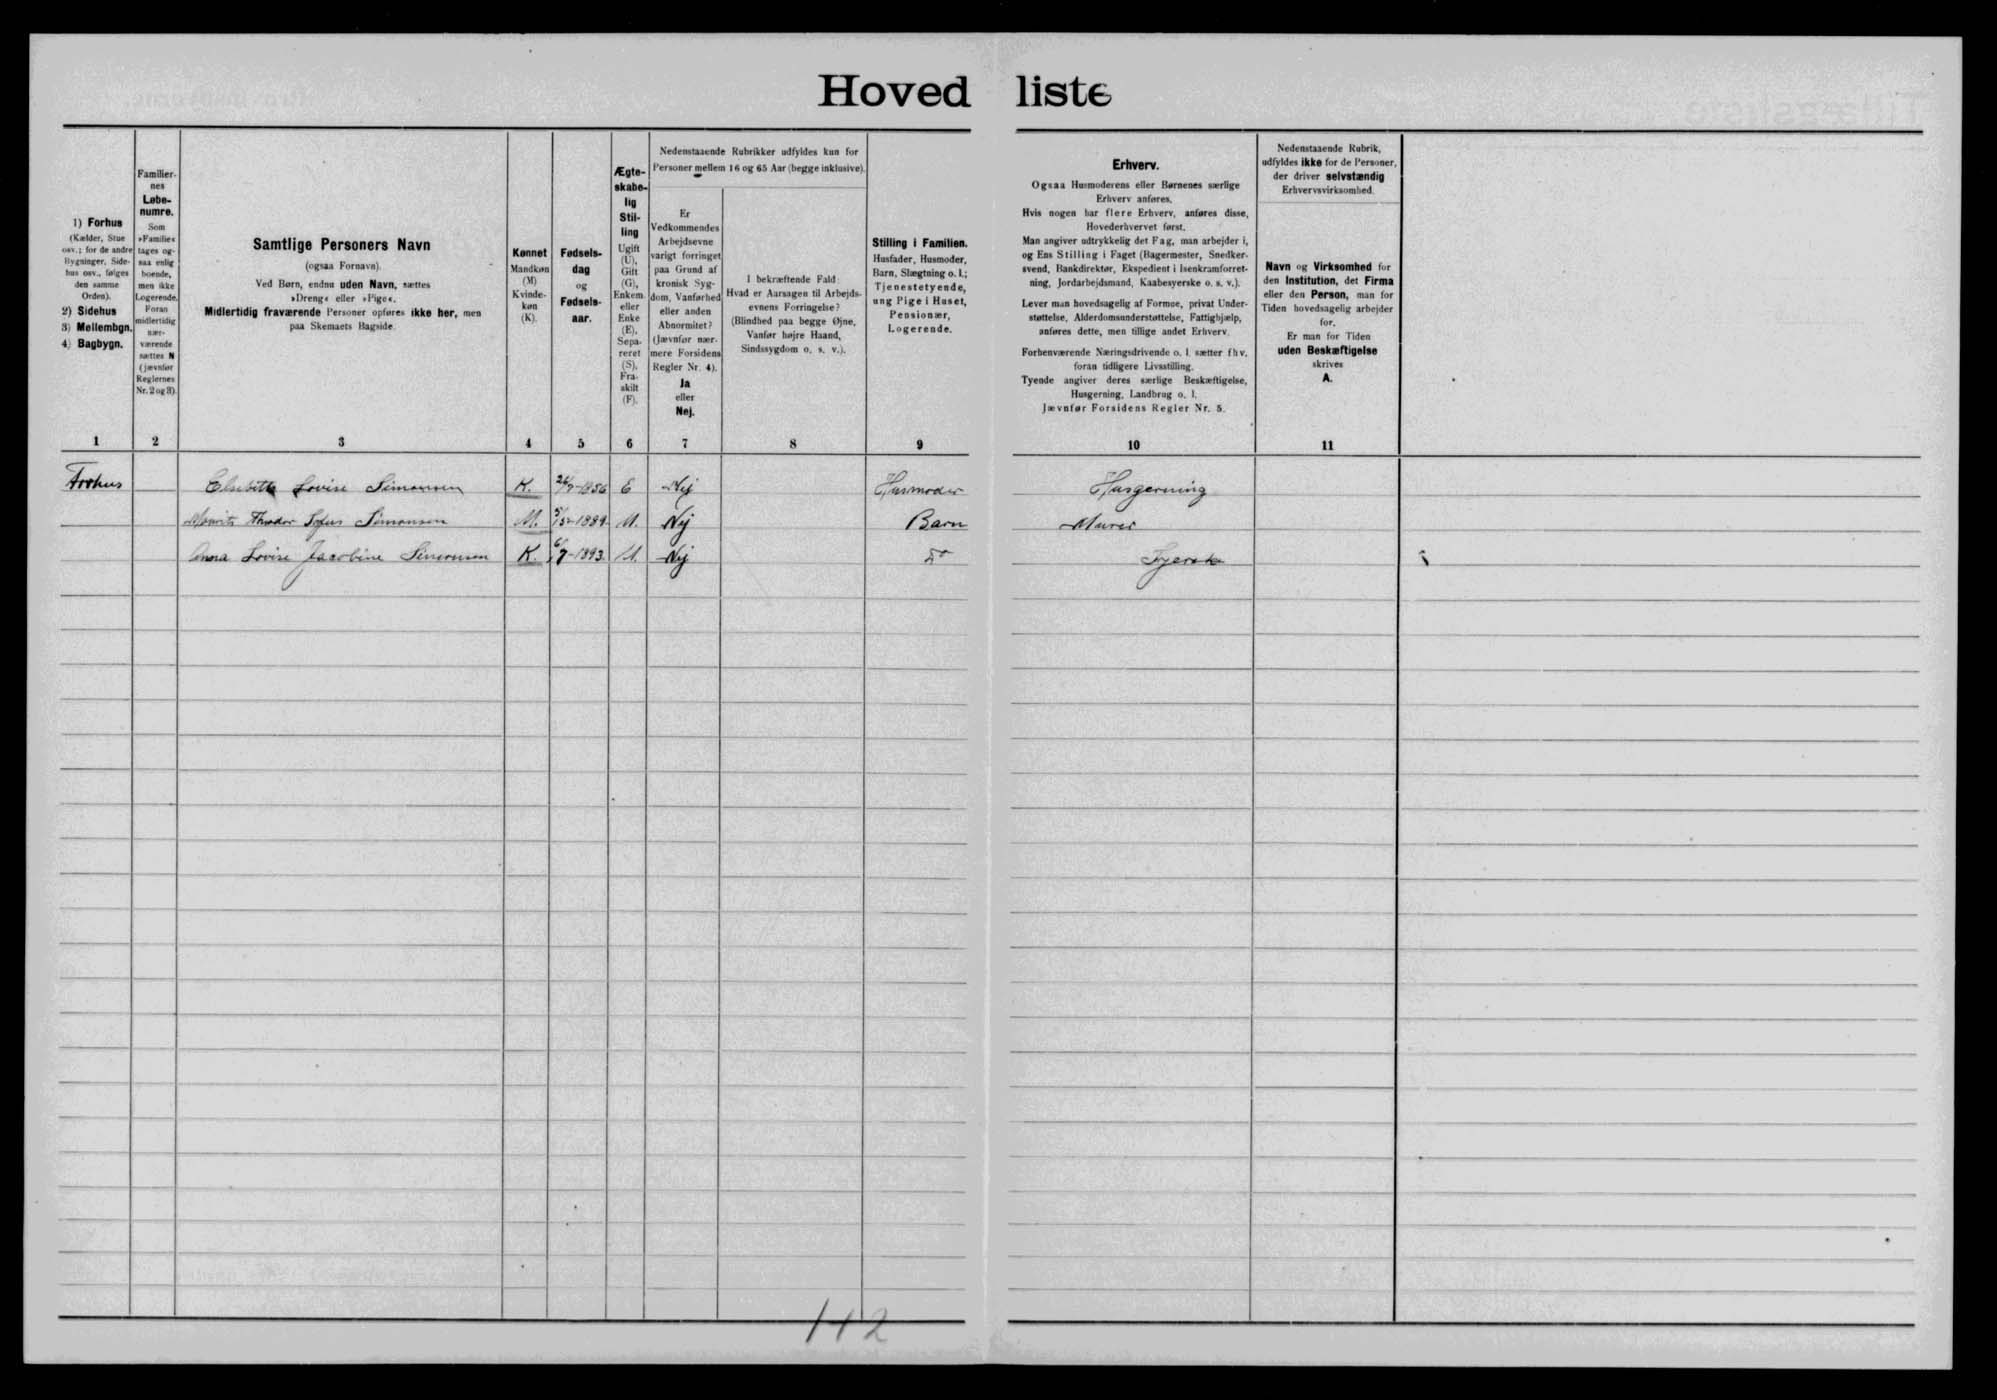 Hoved liste
1) Forhus
(Kælder, Stue
osv.; for de andre
Bygninger, Side-
hus osv., følges
den samme
Orden).
2) Sidehus
3) Mellembgn.
4) Bagbygn.
1
Familier-
nes
Løbe-
numre.
Som
»Familie«
tages og-
saa enlig
boende,
men ikke
Logerende.
Foran
midlertidig
nær-
værende
sættes N
(jævnfør
Reglernes
Nr. 2 og 3).
2
Samtlige Personers Navn
(ogsaa Fornavn).
Ved Børn, endnu uden Navn, sættes
»Dreng« eller »Pige«.
Midlertidig fraværende Personer opføres ikke her, men
paa Skemaets Bagside.
3
Kønnet
Mandkøn
(M)
Kvinde-
køn
(K).
4
Fødsels-
dag
og
Fødsels-
aar.
5
Ægte-
skabe-
lig
Stil-
ling
Ugift
(U),
Gift
(G),
Enkem.
eller
Enke
(E),
Sepa-
reret
(S),
Fra-
skilt
(F).
6
Nedenstaaende Rubrikker udfyldes kun for
Personer mellem 16 og 65 Aar (begge inklusive).
Er
Vedkommendes
Arbejdsevne
varigt forringet
paa Grund af
kronisk Syg-
dom, Vanførhed
eller anden
Abnormitet?
(Jævnfør nær-
mere Forsidens
Regler Nr. 4).
Ja
eller
Nej.
7
I bekræftende Fald:
Hvad er Aarsagen til Arbejds-
evnens Forringelse?
(Blindhed paa begge Øjne,
Vanfør højre Haand,
Sindssygdom o. s. v.).
8
Stilling i Familien.
Husfader, Husmoder,
Barn, Slægtning o. l.;
Tjenestetyende,
ung Pige i Huset,
Pensionær,
Logerende.
9
Erhverv.
Ogsaa Husmoderens eller Børnenes særlige
Erhverv anføres.
Hvis nogen har flere Erhverv, anføres disse,
Hovederhvervet først.
Man angiver udtrykkelig det Fag, man arbejder i,
og Ens Stilling i Faget (Bagermester, Snedker-
svend, Bankdirektør, Ekspedient i Isenkramforret-
ning, Jordarbejdsmand, Kaabesyerske o. s. v.).
Lever man hovedsagelig af Formue, privat Under-
støttelse, Alderdomsunderstøttelse, Fattighjælp,
anføres dette, men tillige andet Erhverv.
Forhenværende Næringsdrivende o. l. sætter fhv.
foran tidligere Livsstilling.
Tyende angiver deres særlige Beskæftigelse,
Husgerning, Landbrug o. l.
Jævnfør Forsidens Regler Nr. 5.
10
Nedenstaaende Rubrik,
udfyldes ikke for de Personer,
der driver selvstændig
Erhvervsvirksomhed.
Navn og Virksomhed for
den Institution, det Firma
eller den Person, man for
Tiden hovedsagelig arbejder
for.
Er man for Tiden
uden Beskæftigelse
skrives
A.
11
Forhus Elsebeth Lovise Simonsen K. 1856 E Nej Husmoder Husgerning
Theodor Sofus Simonsen M. 1889 U. Nej Barn Murer
Anna Lovise Jacobine Simonsen K. 6/7-1893. U. Nej do Syerske
142